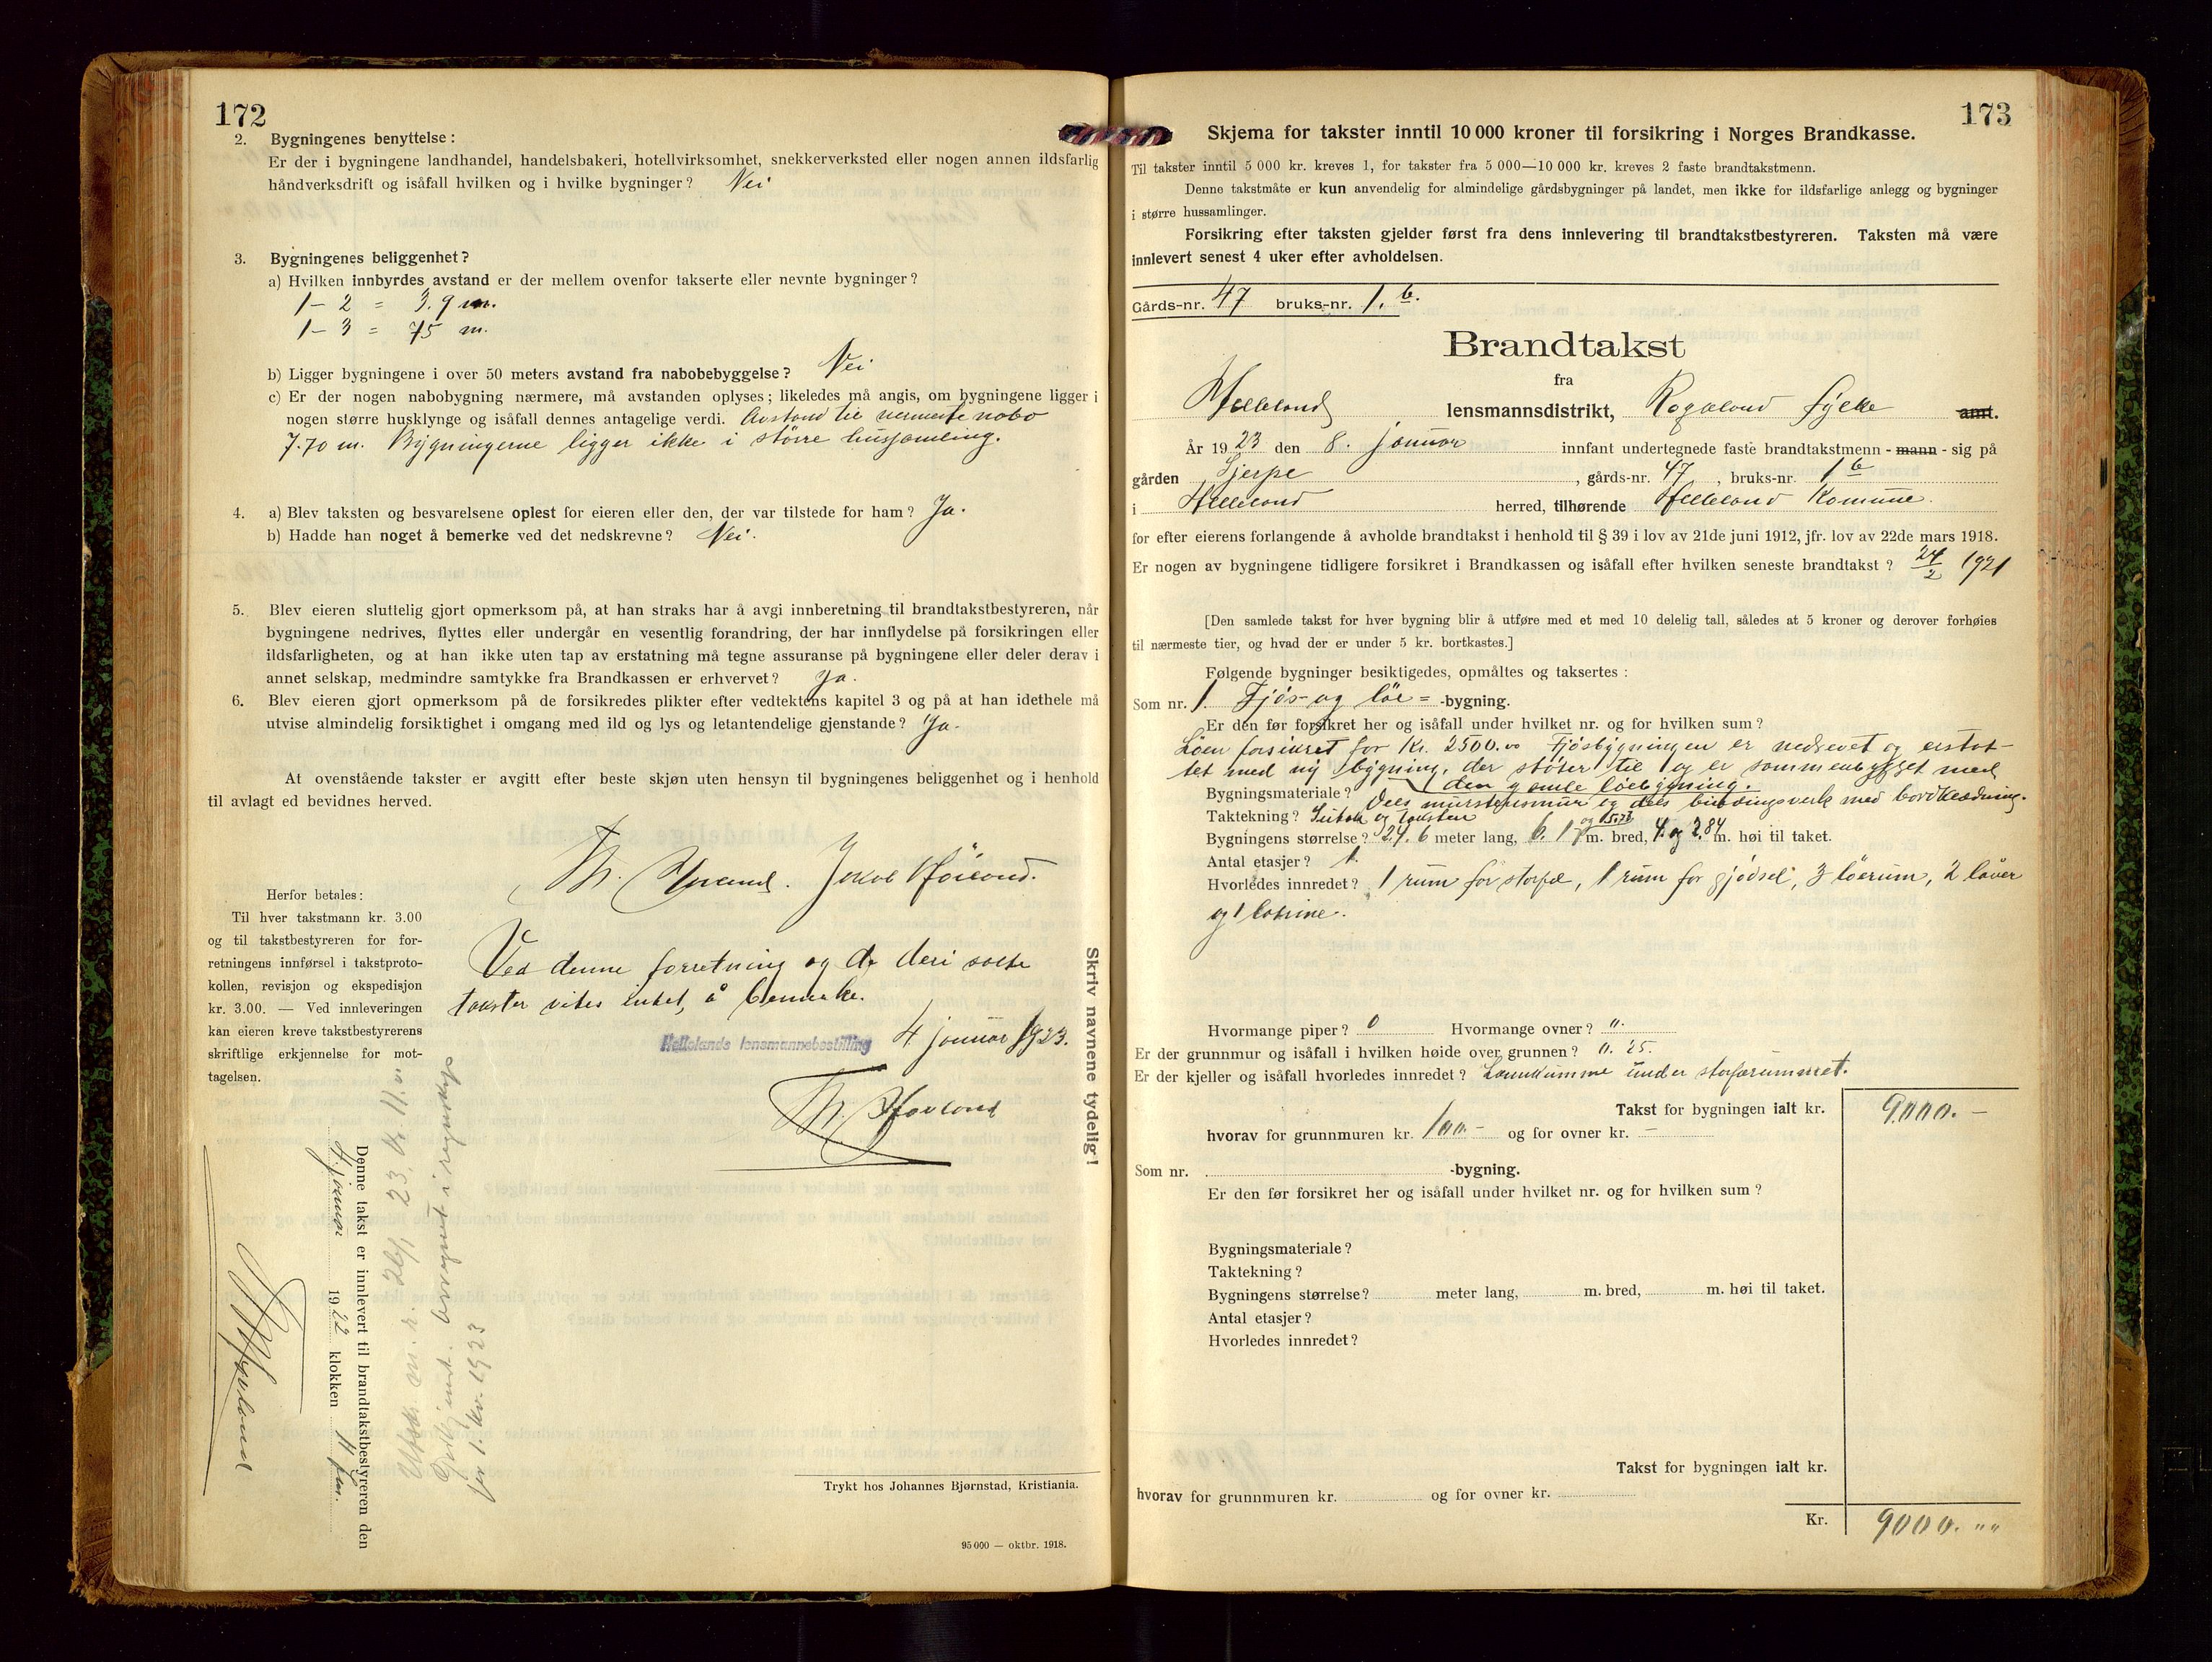 172
2. Bygningenes benyttelse :
Er der i bygningene landhandel, handelsbakeri, hotellvirksomhet, snekkerverksted eller nogen annen ildsfarlig
håndverksdrift og isåfall hvilken og i hvilke bygninger? Nei
3. Bygningenes beliggenhet?
a) Hvilken innbyrdes avstand er der mellem ovenfor takserte eller nevnte bygninger?
1 - 2 = 3.9 m.
1 - 3 = 75 m.
b) Ligger bygningene i over 50 meters avstand fra nabobebyggelse? Nei
c) Er der nogen nabobygning nærmere, må avstanden oplyses; likeledes må angis, om bygningene ligger i
nogen større husklynge og isåfall dennes antagelige verdi. Avstand til nermeste nabo
7.70 m. Bygningerne ligger ikke i större hussamling.
4. a) Blev taksten og besvarelsene oplest for eieren eller den, der var tilstede for ham? Ja.
b) Hadde han noget å bemerke ved det nedskrevne? Nei.
5. Blev eieren sluttelig gjort opmerksom på, at han straks har å avgi innberetning til brandtakstbestyreren, når
bygningene nedrives, flyttes eller undergår en vesentlig forandring, der har innflydelse på forsikringen eller
ildsfarligheten, og at han ikke uten tap av erstatning må tegne assuranse på bygningene eller deler derav i
annet selskap, medmindre samtykke fra Brandkassen er erhvervet? Ja.
6. Blev eieren gjort opmerksom på de forsikredes plikter efter vedtektens kapitel 3 og på at han idethele må
utvise almindelig forsiktighet i omgang med ild og lys og letantendelige gjenstande? Ja.
At ovenstående takster er avgitt efter beste skjøn uten hensyn til bygningenes beliggenhet og i henhold
til avlagt ed bevidnes herved.
Jakob Höiland.
Herfor betales:
Til hver takstmann kr. 3.00
og til takstbestyreren for for-
retningens innførsel i takstproto-
kollen, revisjon og ekspedisjon
kr. 3.00. — Ved innleveringen
kan eieren kreve takstbestyrerens
skriftlige erkjennelse for mot-
tagelsen.
Ved denne forretning og de deri satte
takster vites intet å bemerke.
Hellelands lensmannsbestilling 4 januar 1923.
Th. Hovland
Skriv navnene tydelig!
Denne takst er innlevert til brandtakstbestyreren den
4. januar 1922 klokken 4 fm.
Utfærd. m. r. 26/1 23. Kr. 11.
Godkjent. Avregnet i regnskap
for 1. kv. 1923
Trykt hos Johannes Bjørnstad, Kristiania.
95 000 — oktbr. 1918.
173
Skjema for takster inntil 10 000 kroner til forsikring i Norges Brandkasse.
Til takster inntil 5 000 kr. kreves 1, for takster fra 5 000—10 000 kr. kreves 2 faste brandtakstmenn.
Denne takstmåte er kun anvendelig for almindelige gårdsbygninger på landet, men ikke for ildsfarlige anlegg og bygninger
i større hussamlinger.
Forsikring efter taksten gjelder først fra dens innlevering til brandtakstbestyreren. Taksten må være
innlevert senest 4 uker efter avholdelsen.
Gårds-nr. 47 bruks-nr. 1. b.
Brandtakst
fra
Helleland lensmannsdistrikt, Rogaland fylke amt.
År 1923 den 8. januar innfant undertegnede faste brandtakstmenn - mann - sig på
gården Gjerpe, gårds-nr. 47, bruks-nr. 1 b
i Helleland herred, tilhørende Helleland Komune.
for efter eierens forlangende å avholde brandtakst i henhold til § 39 i lov av 21de juni 1912, jfr. lov av 22de mars 1918.
Er nogen av bygningene tidligere forsikret i Brandkassen og isåfall efter hvilken seneste brandtakst? 24/2 1921
[Den samlede takst for hver bygning blir å utføre med et med 10 delelig tall, således at 5 kroner og derover forhøies
til nærmeste tier, og hvad der er under 5 kr. bortkastes.]
Følgende bygninger besiktigedes, opmåltes og taksertes :
Som nr. 1. Fjös- og löe= -bygning.
Er den før forsikret her og isåfall under hvilket nr. og for hvilken sum?
Löen forsikret for Kr. 2500.00 Fjösbygningen er nedrevet og erstat-
tet med ny bygning, der støter til og er sammenbygget med
den gamle löebygning.
Bygningsmateriale? Dels murstensmur og dels bindingsverk med bordklædning.
Taktekning? og taksten
Bygningens størrelse? 24.6 meter lang, 6.17 og 15.73 m. bred, 4. og 2.84 m. høi til taket.
Antal etasjer? 1.
Hvorledes innredet? 1 rum for storfæ, 1 rum for gjödsel, 3 löerum, 2 låver
og 1 latrine.
Hvormange piper? 0 Hvormange ovner? ".
Er der grunnmur og isåfall i hvilken høide over grunnen? 0.25.
Er der kjeller og isåfall hvorledes innredet? Lannkumme under storfærummet.
Takst for bygningen ialt kr. 9000. -
hvorav for grunnmuren kr. 100.- og for ovner kr. -
Som nr. -bygning.
Er den før forsikret her og isåfall under hvilket nr. og for hvilken sum?
Bygningsmateriale?
Taktekning?
Bygningens størrelse? meter lang, m. bred, m. høi til taket.
Antal etasjer?
Hvorledes innredet?
Takst for bygningen ialt kr.
hvorav for grunnmuren kr. og for ovner kr.
Kr. 9000. ""